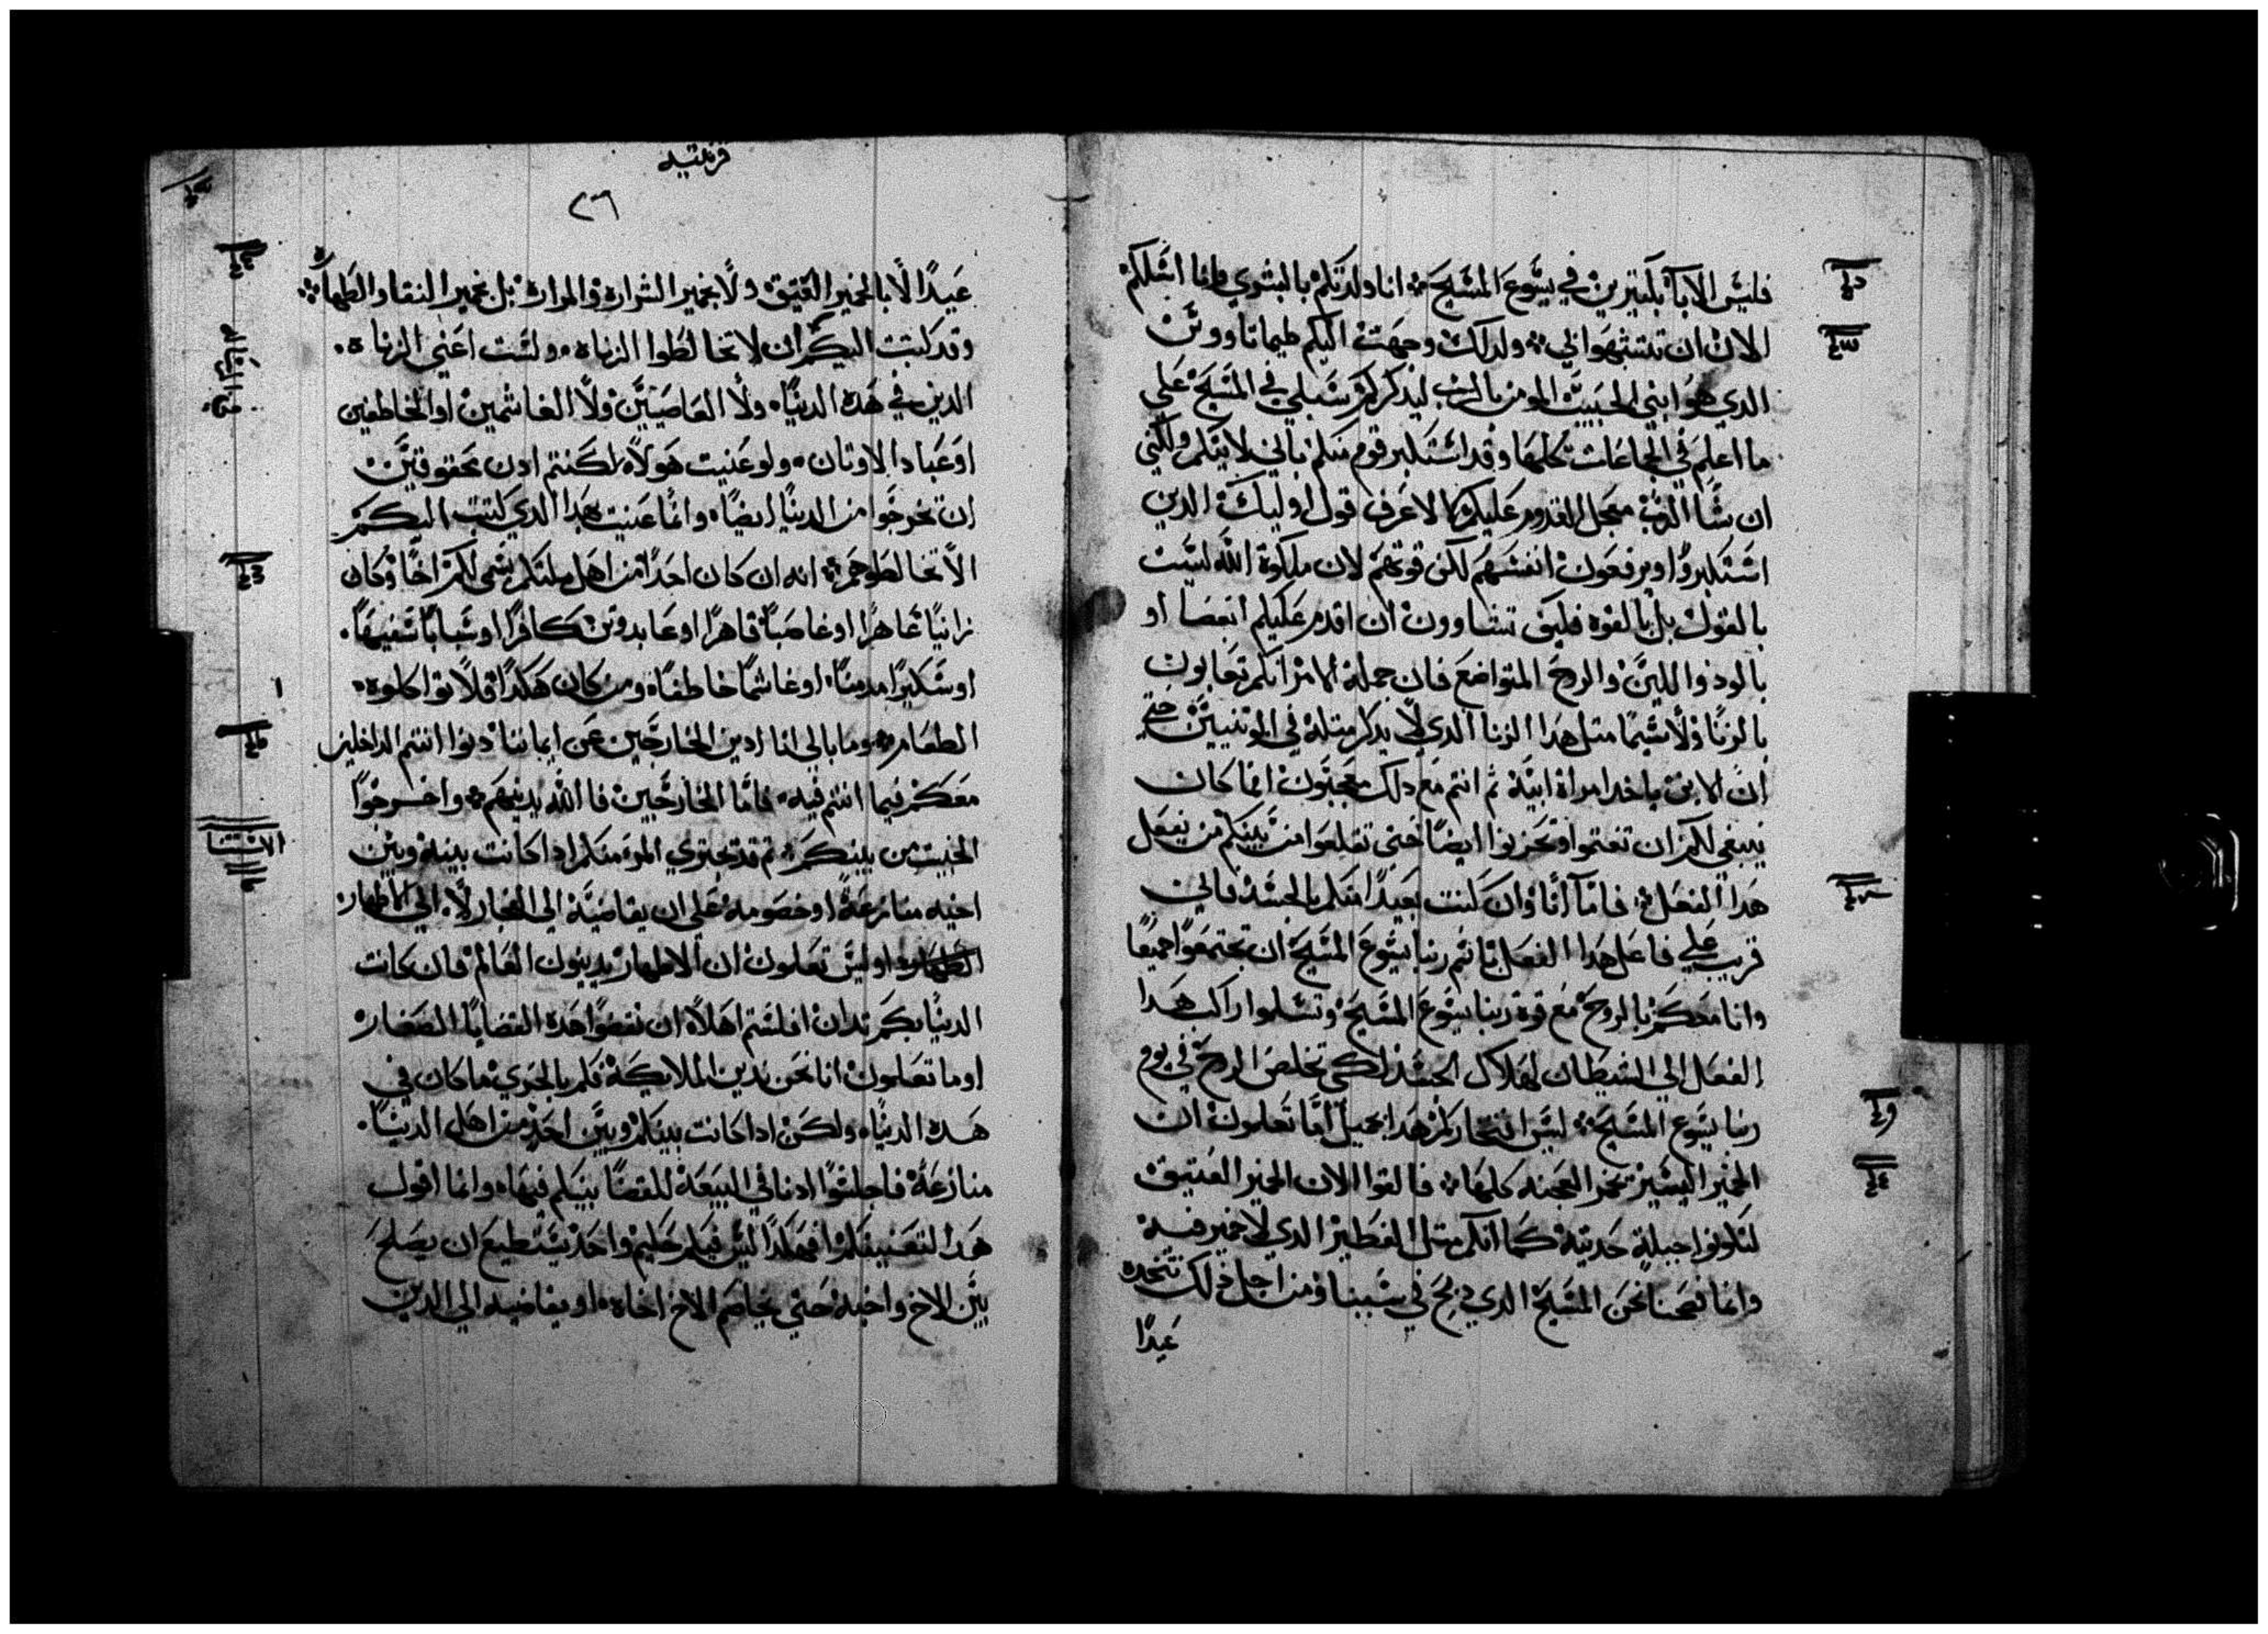 فليس الابا بكتيرين في يسوع المسيح انا ولدتكم بالبشري وانا اسلكم
الان ان تتشبهوا بي ولدلك وجهت اليكم طيماتاووس
الدي هو ابني الحبيب المومن بالرب ليدكركم سبلي في المسيح علي
ما اعلم في الجماعات كلها وقد استكبر قوم منكم باني لا اتيكم ولكني
ان شا الرب معجل القدوم عليكم لاعرف قول اوليك الدين
استكبروا ويرفعون انفسهم لكن قوتهم لان ملكوة الله ليست
بالقول بل بالقوه فكيف تشاوون ان اقدم عليكم ابعصا او
بالود واللين والروح المتواضع فان جملة الامر انكم تعابون
بالزنا ولا سيما متل هدا الزنا الدي لا يدكر متله في الوتنيين حتي
ان الابن ياخد امراة ابيه تم انتم مع دلك معجبون انما كان
ينبغي لكم ان تغتموا وتحزنوا ايضا حتي تقلعوا من بينكم من يفعل
هدا الفعل فاما انا وان كنت بعيدا منكم بالجسد فاني
قريب علي فاعل هدا الفعل باسم ربنا يسوع المسيح ان تجتمعوا جميعا
وانا معكم بالروح مع قوة ربنا يسوع المسيح وتسلموا راكب هدا
الفعل الي الشيطان لهلاك الجسد لكي تخلص الروح في يوم
ربنا يسوع المسيح ليس افتخاركم هدا بجميل اما تعلمون ان
الخمير اليسير تخمر العجنه كلها فالقوا الان الخمير العتيق
لتكونوا جبلة حديته كما انكم متل الفطير الدي لا خمير فيه
وانما فصحنا نحن المسيح الدي دبح في سببنا ومن اجل دلك نتخده
عيدا
قرنتيه
٢٦
عيدا لا بالخمير العتيق ولا بخمير الشرارة والمرارة بل بخمير النقا والطهاره
وقد كتبت اليكم ان لا تخالطوا الزناة ولست اعني الزناة
الدين في هده الدنيا ولا العاصيين ولا الغاشمين او الخاطفين
او عباد الاوتان ولو عنيت هولاء لكنتم ادن محقوقين
ان تخرجوا من الدنيا ايضا وانما عنيت بهدا الدي كتبت اليكم
الا تخالطوهم انه ان كان احدا من اهل ملتكم يسمي لكم اخا وكان
زانيا عاهرا او غاصبا قاهرا او عابد وتن كافرا او سبابا سفيها
او سكيرا مدمنا او غاشما خاطفا ومن كان هكدا فلا تواكلوه
الطعام وما بالي انا ادين الخارجين عن ايماننا دنوا انتم الداخلين
معكم فيما انتم فيه فاما الخارجين فالله يدينهم واخرجوا
الخبيت من بينكم تم قد يجتري المر منكم ادا كانت بينه وبين
اخيه منازعة او خصومة علي ان يقاضيه الي الفجار لا الي الاطهار
اوليس تعلمون ان الاطهار يدينون العالم فان كانت
الدنيا بكم تدان افلستم اهلا ان تقضوا هده القضايا الصغار
اوما تعلمون انا نحن ندين الملايكة فكم بالحري ما كان في
هده الدنيا ولكن ادا كانت بينكم وبين احد من اهل الدنيا
منازعة فاجلسوا ادنا في البيعة للقضا بينكم فيها وانما اقول
هدا لتعنيفكم افهكدا ليس فيكم حكيم واحد يستطيع ان يصلح
بين الاخ واخيه حتي يخاصم الاخ اخاه او يقاضيه الي الدين